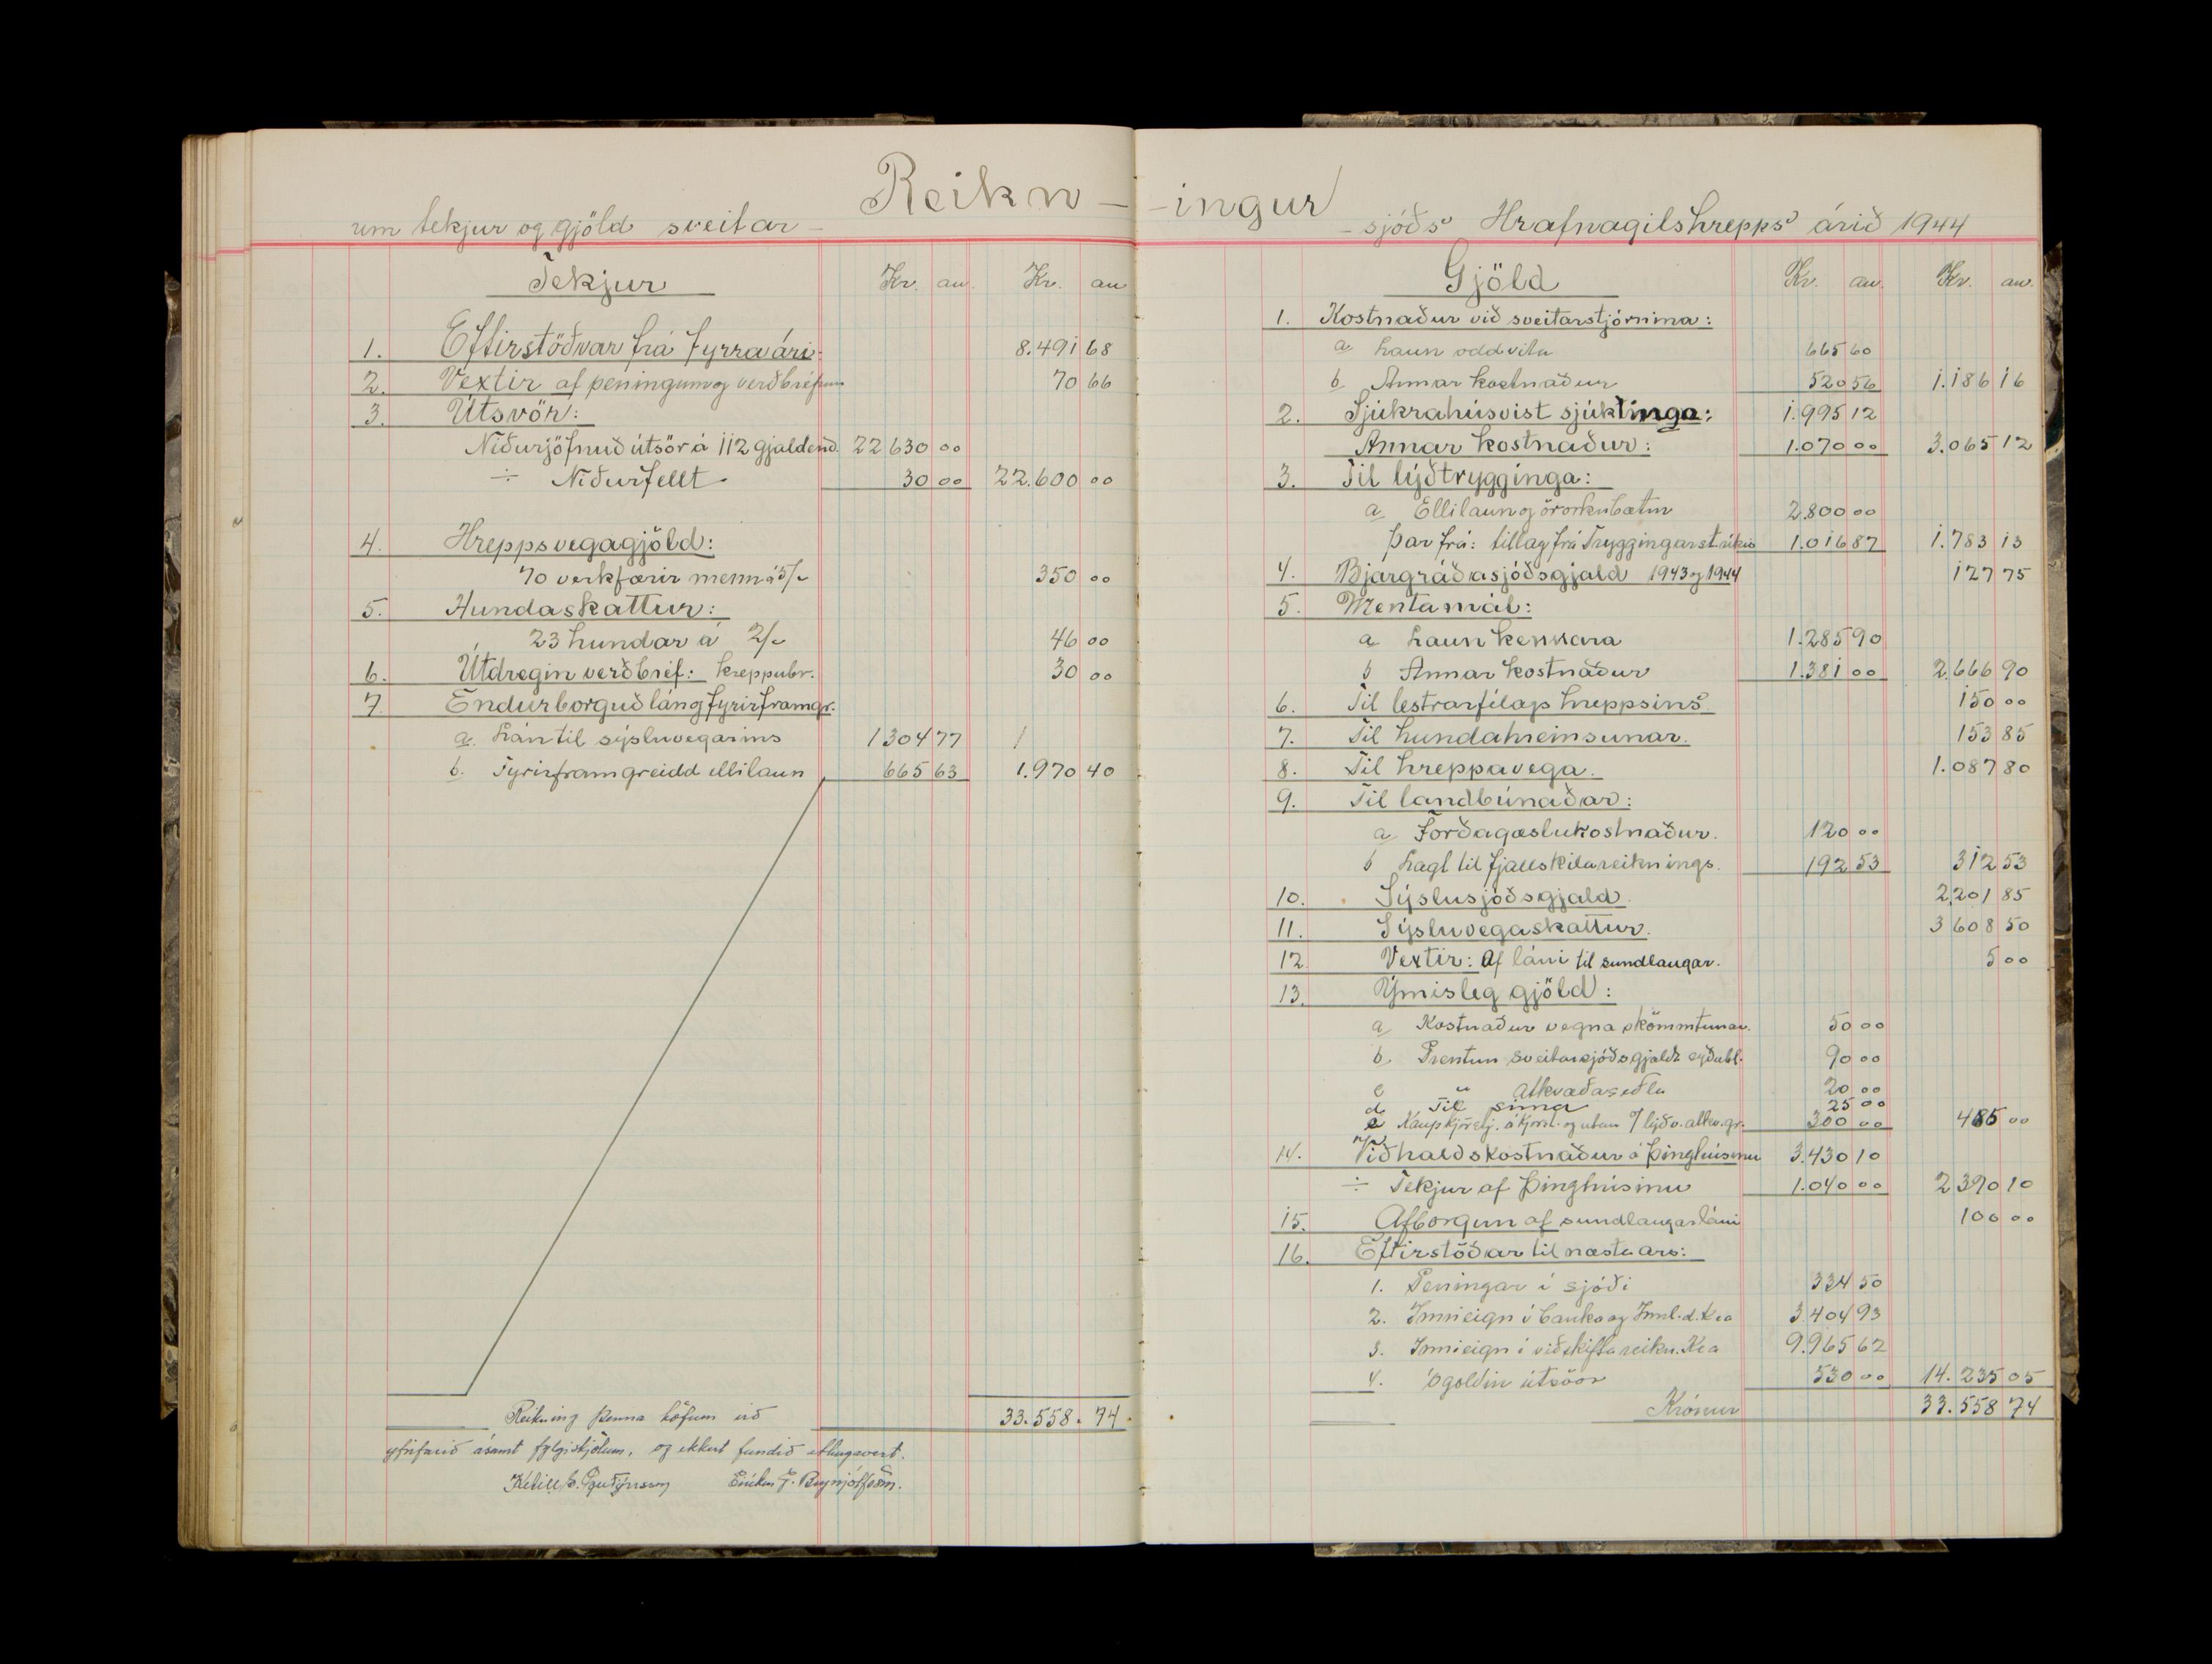 Reikn - - ingur
um tekjur og gjöld sveitar -
- sjóðs Hrafnagilshrepps árið 1944
Tekjur Kr. au. Kr. au
1. Eftirstöðvar frá fyrra ári. 8.491 68
2. Vextir af peningum og verðbréfum 70 66
3. Útsvör:
Niðurjöfnuð útsör á 112 gjaldend. 22 630 00
÷ Niðurfellt 30 00 22.600 00
4. Hreppsvegagjöld:
70 verkfærir menn á 5/- 350 00
5. Hundaskattur:
23 hundar á 2/- 46 00
6. Útdregin verðbréf: kreppubr. 30 00
7. Endurborguð lán og fyrirframgr.
a. Lán til sýsluvegarins 1304 77
b. Fyrirframgreidd ellilaun 665 63 1.970 40
33.558. 74
Reikning þenna höfum við
yfirfarið ásamt fylgiskjölum, og ekkert fundið athugavert.
Ketill S. Guðjónsson
Gjöld Kr. au. Kr. au.
1. Kostnaður við sveitarstjórnina:
a Laun oddvita 665 60
b Annar kostnaður 520 56 1.186 16
2. Sjúkrahúsvist sjúklinga: 1.995 12
Annar kostnaður: 1.070 00 3.065 12
3. Til lýðtrygginga:
a Ellilaun og örorkubætur 2.800 00
Þar frá: tillag frá Tryggingarst. ríkis 1.016 87 1.783 13
4. Bjargráðasjóðsgjald 1943 og 1944 127 75
5. Mentamál:
a Laun kennara 1.285 90
b Annar kostnaður 1.381 00 2.666 90
6. Til lestrarfélags hreppsins. 150 00
7. Til hundahreinsunar. 153 85
8. Til hreppavega. 1.087 80
9. Til landbúnaðar:
a Forðagæslukostnaður. 120 00
b Lagt til fjallskilareiknings. 192 53 312 53
10. Sýslusjóðsgjald. 2.201 85
11. Sýsluvegaskattur. 3 608 50
12 Vextir: Af láni til sundlaugar. 5 00
13. Ýmisleg gjöld:
a Kostnaður vegna skömmtunar. 50 00
b. Prentun sveitarsjóðsgjalds eyðubl. 90 00
c " Atkvæðaseðla 20 00
d Til síma 25 00
e Kaup kjörstj. á kjörst. og utan v/ lýðv. atkv. gr. 300 00 485 00
14. Viðhaldskostnaður á þinghúsinu 3.430 10
÷ Tekjur af þinghúsinu 1.040 00 2 390 10
15. Afborgun af sundlaugarláni 100 00
16. Eftirstöðar til næsta árs:
1. Peningar í sjóði 334 50
2. Inneign í banka og Innl. d. Kea 3.404 93
3. Innieign í viðskiftareikn. Kea 9.965 62
4. Ógoldin útsvör 530 00 14.235 05
Krónur 33.558 74